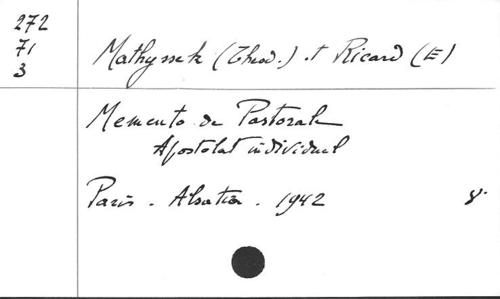 272
71
3
Mathyssek (Theod.) et Ricard (E)
Memento de Pastorale
Apostolat individuel
Paris - Alsatia - 1942 8°